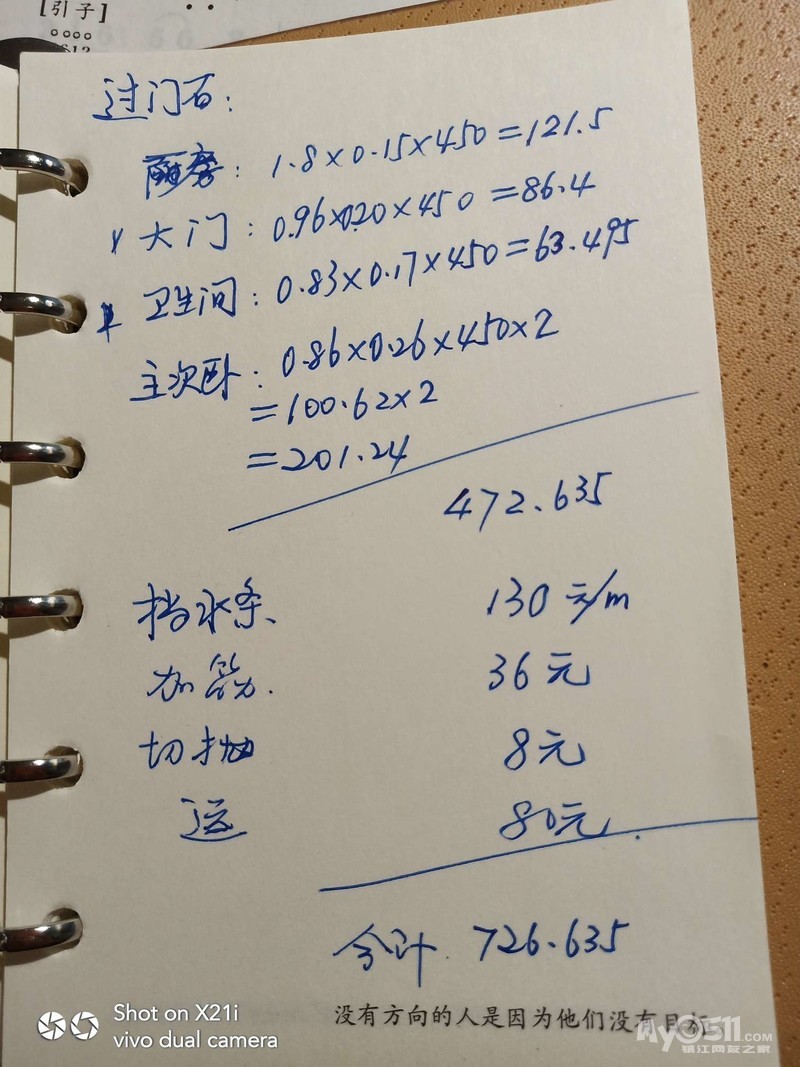 [引子]
过门石:
厨房: 1.8×0.15×450=121.5
大门: 0.96×0.20×450=86.4
卫生间: 0.83×0.17×450=63.495
主次卧: 0.86×0.26×450×2
=100.62×2
=201.24
472.635
挡水条 130元/m
加筋. 36元
切抛 8元
运 80元.
合计 726.635
没有方向的人是因为他们没有目标
Shot on X21i
vivo dual camera
My0511.COM
镇江网友之家